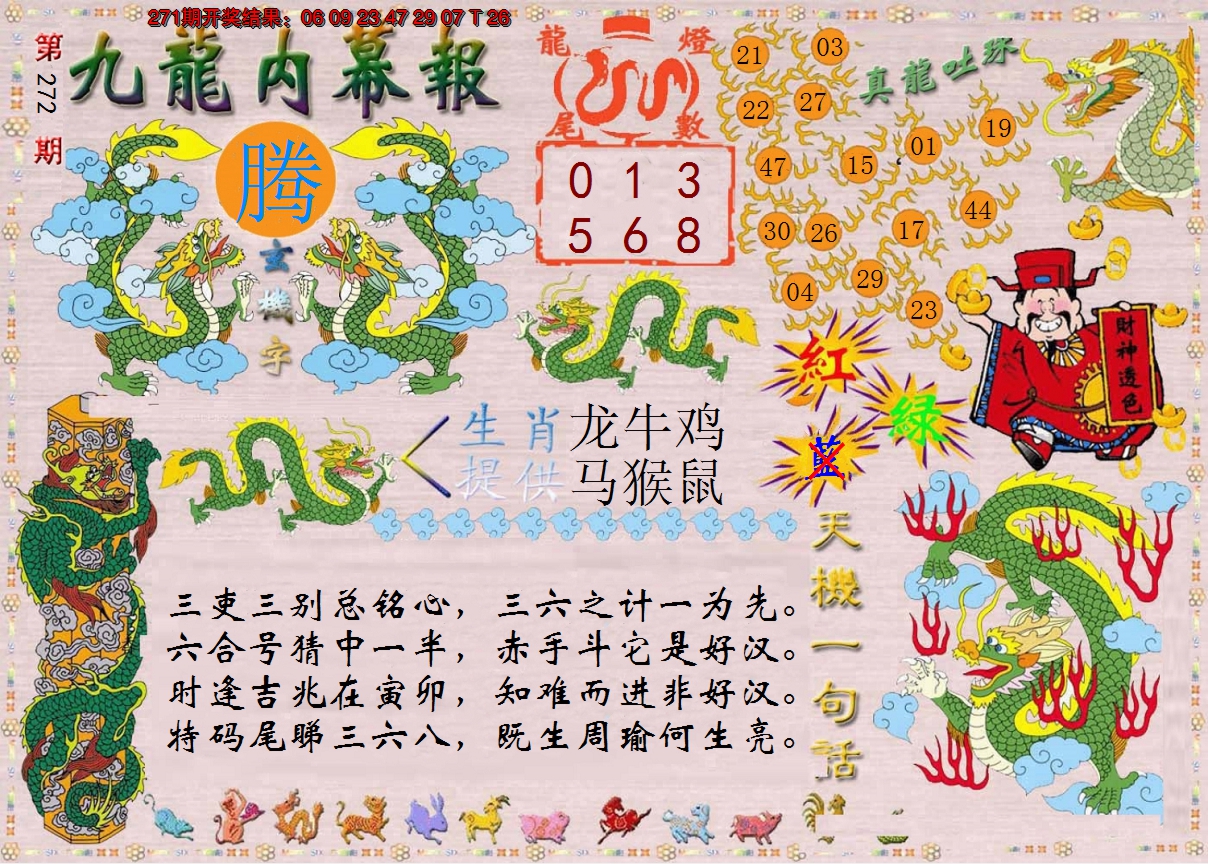 271期开奖结果：06 09 23 47 29 07 T 26
第272期
九龍内幕報
腾
玄機字
龍燈尾數
0 1 3
5 6 8
真龍吐珠
21 03
22 27
47 15 01 19
30 26 17 44
04 29 23
紅
綠
藍
財神透色
生肖提供
龙牛鸡
马猴鼠
三吏三别总铭心，三六之计一为先。
六合号猜中一半，赤手斗它是好汉。
时逢吉兆在寅卯，知难而进非好汉。
特码尾睇三六八，既生周瑜何生亮。
天機一句話